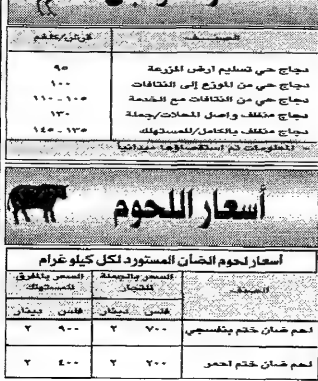 الصنف قرش/كلغم
دجاج حي تسليم ارض المزرعة ٩٥
دجاج حي من الموزع إلى النتافات ١٠٠
دجاج حي من النتافات مع الخدمة ١٠٥ - ١١٠
دجاج منظف واصل المحلات/جملة ١٣٠
دجاج منظف بالكامل/للمستهلك ١٣٥ - ١٤٥
المعلومات تم استقصاؤها ميدانياً
أسعار اللحوم
أسعار لحوم الضأن المستورد لكل كيلو غرام
الصنف السعر بالجملة للتجار السعر بالمفرق للمستهلك
فلس دينار فلس دينار
لحم ضان ختم بنفسجي ٧٠٠ ٢ ٩٠٠ ٢
لحم ضان ختم احمر ٢٠٠ ٢ ٤٠٠ ٢